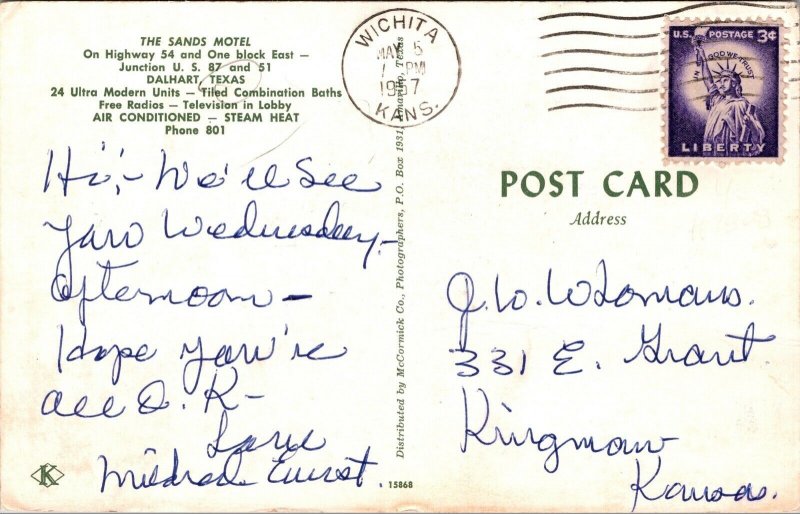 THE SANDS MOTEL
On Highway 54 and One block East —
Junction U. S. 87 and 51
DALHART, TEXAS
24 Ultra Modern Units — Tiled Combination Baths
Free Radios — Television in Lobby
AIR CONDITIONED — STEAM HEAT
Phone 801
Hi,- We'll See
you Wednesday-
afternoon-
Hope you're
all O.K-
Love
Mildred
K
Distributed by McCormick Co., Photographers, P.O. Box 1931, Amarillo, Texas
15868
WICHITA
MAY 5
PM
1957
KANS.
U.S. POSTAGE 3¢
IN GOD WE TRUST
LIBERTY
POST CARD
Address
J.W.
331 E. Grant.
Kingman
Kansas.